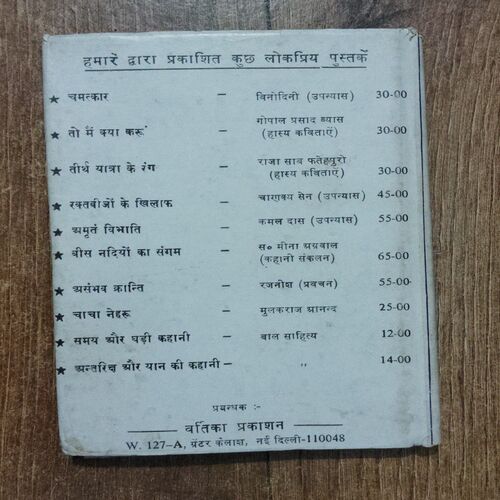 हमारे द्वारा प्रकाशित कुछ लोकप्रिय पुस्तकें
★ चमत्कार – विनोदिनी (उपन्यास) 30-00
★ तो मैं क्या करूं – गोपाल प्रसाद व्यास (हास्य कविताएं) 30-00
★ तीर्थ यात्रा के रंग – राजा साब फतेहपुरी (हास्य कविताएं) 30-00
★ रक्तबीजों के खिलाफ – चाणक्य सेन (उपन्यास) 45-00
★ अमृतं विभाति – कमल दास (उपन्यास) 55-00
★ बीस नदियों का संगम – स० मीना अग्रवाल (कहानी संकलन) 65-00
★ असंभव क्रान्ति – रजनीश (प्रवचन) 55-00
★ चाचा नेहरू – मुलकराज आनन्द 25-00
★ समय और घड़ी कहानी – बाल साहित्य 12-00
★ अन्तरिक्ष और यान की कहानी – ,, 14-00
प्रबन्धक :-
वर्तिका प्रकाशन
W. 127-A, ग्रेटर कैलाश, नई दिल्ली-110048